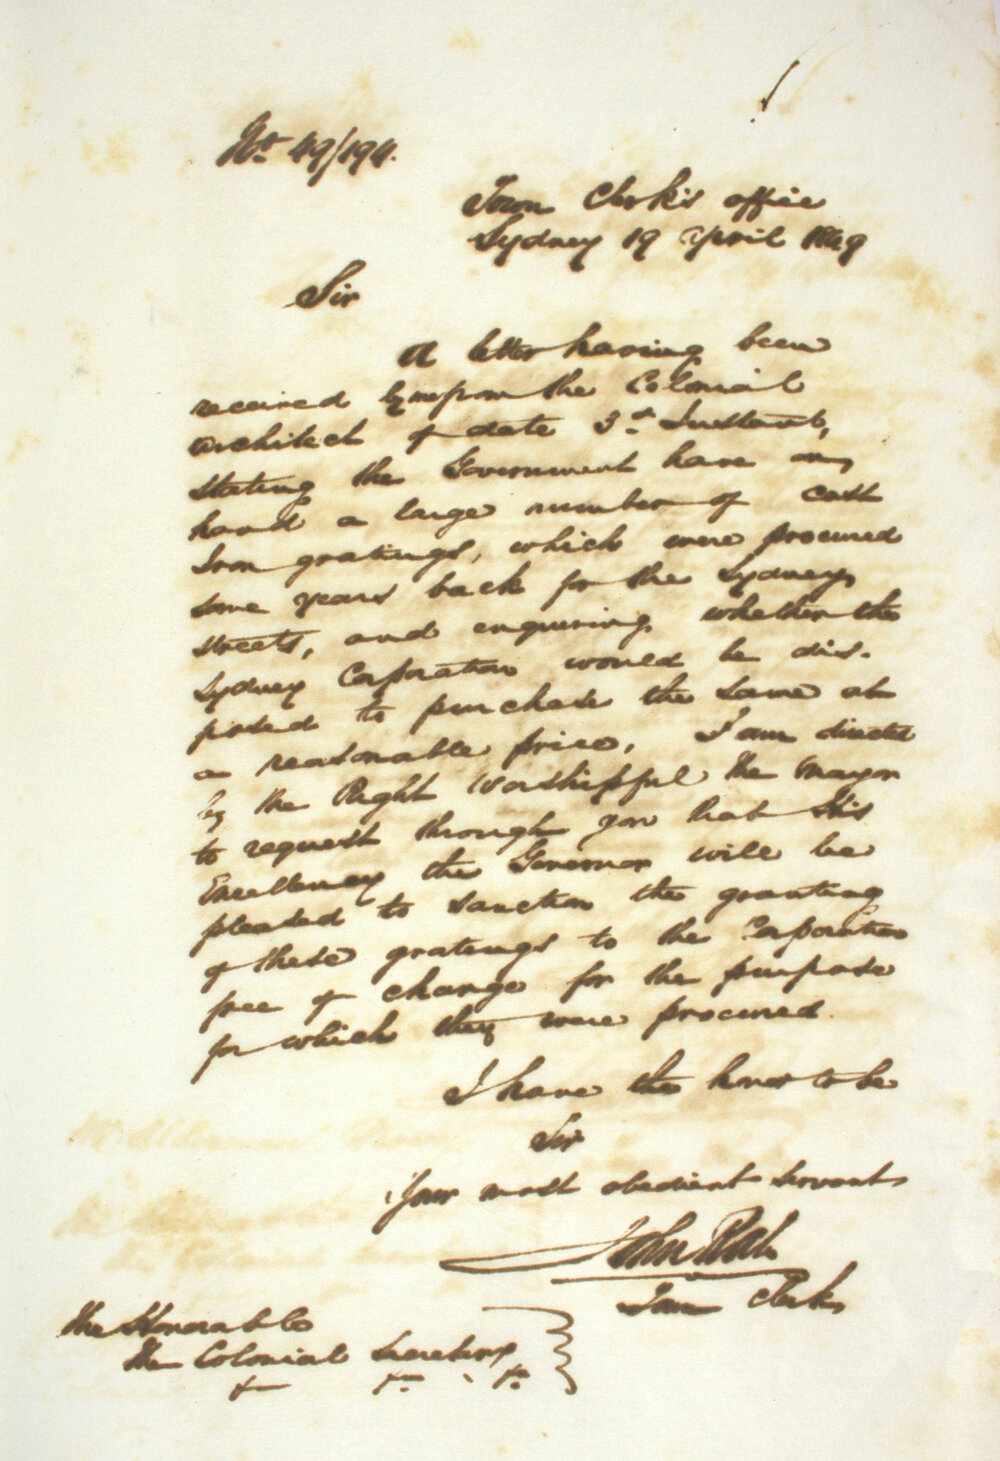 No. 49/194.
Town Clerk's office
Sydney 19 April 1849
Sir
A letter having been
received by me from the Colonial
Architect of date 3rd Instant,
stating the Government have on
hand a large number of cast
Iron gratings, which were procured
some years back for the Sydney
streets, and enquiring whether the
Sydney Corporation would be dis-
posed to purchase the same at
a reasonable price, I am directed
by the Right Worshipful the Mayor
to request through you that His
Excellency the Governor will be
pleased to sanction the granting
of these gratings to the Corporation
free of charge for the purpose
for which they were procured.
I have the honor to be
Sir
Your most obedient servant
John Rae
Town Clerk
The Honorable
The Colonial Secretary